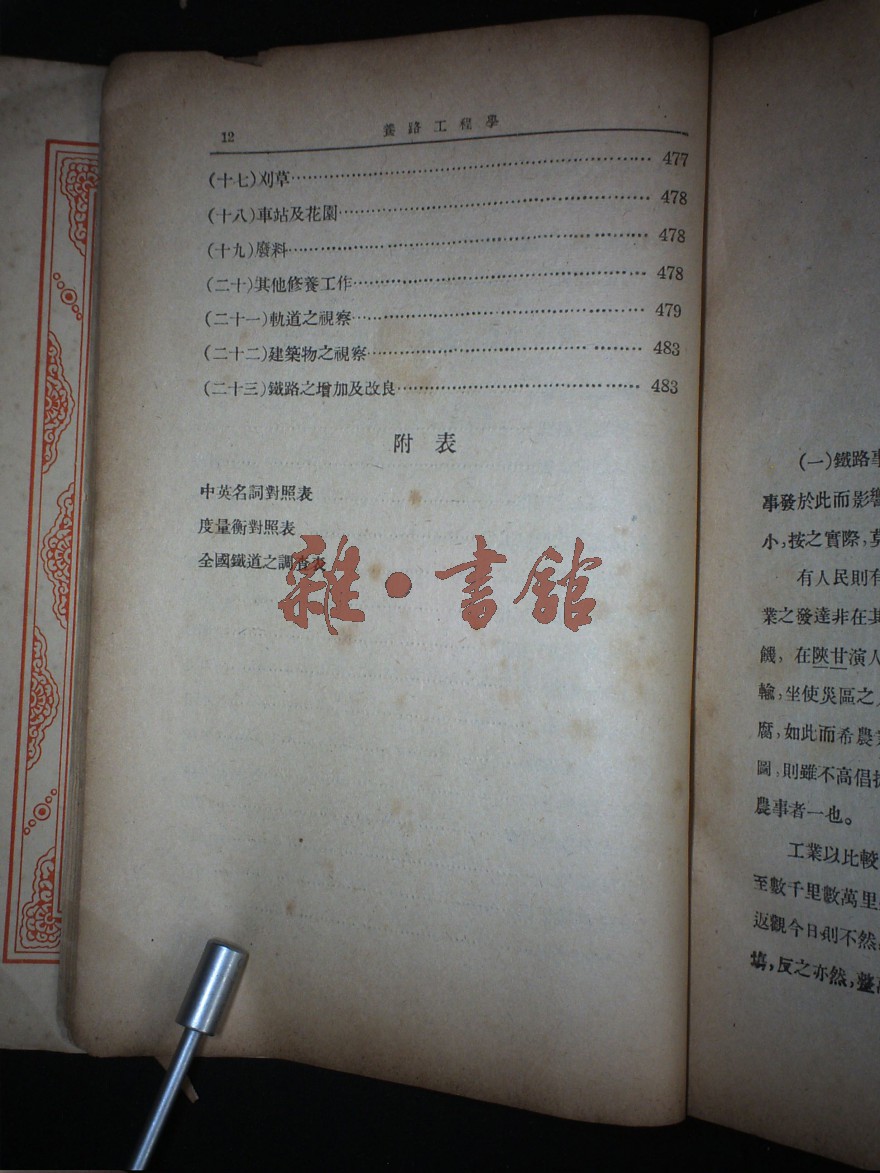 12 養路工程學
(十七)刈草 477
(十八)車站及花園 478
(十九)廢料 478
(二十)其他修養工作 478
(二十一)軌道之視察 479
(二十二)建築物之視察 483
(二十三)鐵路之增加及改良 483
附表
中英名詞對照表
度量衡對照表
全國鐵道之調查表
雜·書館
(一)鐵路事
事發於此而影響
小,按之實際,莫
有人民則有
業之發達非在其
饑,在陝甘演人
輸,坐使災區之
腐,如此而希農業
圖,則雖不高倡振
農事者一也。
工業以比較
至數千里數萬里
返觀今日則不然
填,反之亦然,盤